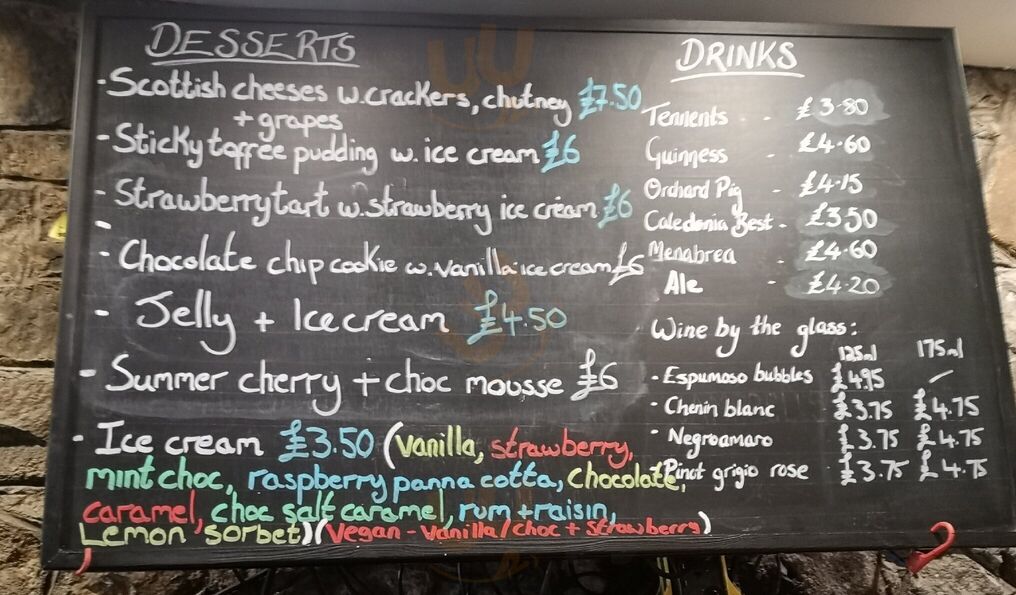 DESSERTS
- Scottish cheeses w. crackers, chutney £7.50
+ grapes
- Sticky toffee pudding w. ice cream £6
- Strawberry tart w. strawberry ice cream £6
- Chocolate chip cookie w. vanilla ice cream £6
- Jelly + Icecream £4.50
- Summer cherry + choc mousse £6
- Ice cream £3.50 (vanilla, strawberry,
mint choc, raspberry panna cotta, chocolate,
caramel, choc salt caramel, rum + raisin,
Lemon sorbet) (Vegan - Vanilla/choc + strawberry)
DRINKS
Tennents . . £3.80
Guinness - £4.60
Orchard Pig - £4.15
Caledonia Best - £3.50
Menabrea . £4.60
Ale - £4.20
Wine by the glass:
125ml 175ml
- Espumoso bubbles £4.95 -
- Chenin blanc £3.75 £4.75
- Negroamaro £3.75 £4.75
- Pinot grigio rose £3.75 £4.75